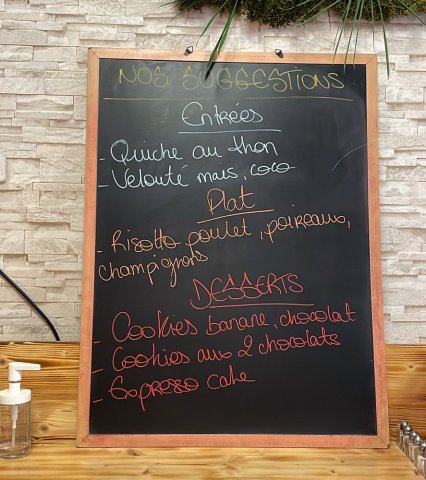 NOS SUGGESTIONS
Entrées
- Quiche au thon
- Velouté maïs, coco
Plat
- Risotto poulet, poireaux,
champignons
DESSERTS
- Cookies banane, chocolat
- Cookies aux 2 chocolats
- Espresso cake